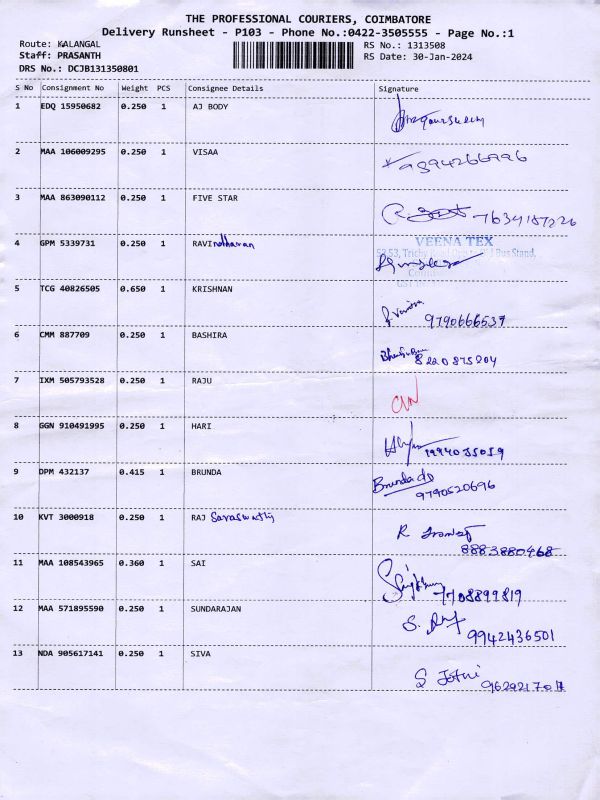 THE PROFESSIONAL COURIERS, COIMBATORE
Delivery Runsheet - P103 - Phone No.:0422-3505555 - Page No.:1
Route: KALANGAL RS No.: 1313508
Staff: PRASANTH RS Date: 30-Jan-2024
DRS No.: DCJB131350801
S No Consignment No Weight PCS Consignee Details Signature
1 EDQ 15950682 0.250 1 AJ BODY
2 MAA 106009295 0.250 1 VISAA
3 MAA 863090112 0.250 1 FIVE STAR 7634187226
VEENA TEX
4 GPM 5339731 0.250 1 RAVIndharan
Bus Stand,
5 TCG 40826505 0.650 1 KRISHNAN 9790666537
6 CMM 887709 0.250 1 BASHIRA 8220875804
7 IXM 505793528 0.250 1 RAJU
8 GGN 910491995 0.250 1 HARI 9994035059
9 DPM 432137 0.415 1 BRUNDA Brunda
9790520696
10 KVT 3000918 0.250 1 RAJ Saraswathy R
8883880468
11 MAA 108543965 0.360 1 SAI 7708899819
12 MAA 571895590 0.250 1 SUNDARAJAN S.
9942436501
13 NDA 905617141 0.250 1 SIVA S Jothi